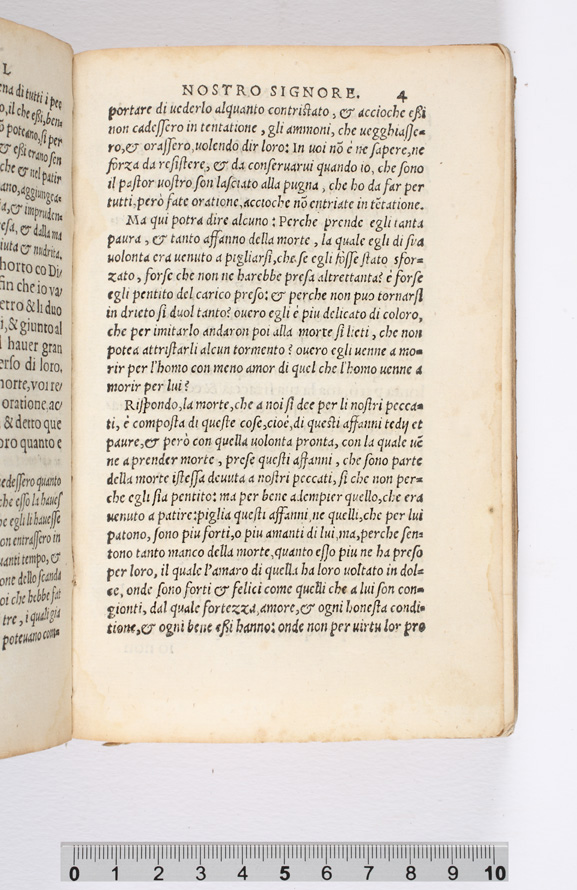 L
ena di tutti i pec
o, il che eßi, ben-
õ poteano, si per
& eßi erano sen
che & nel patir
ano, aggiungea-
ia, & impruden-
esa, & dalla ma
iuta & nudrita.
horto co Di/
fin che io va/
etro & li duo
i, & giunto al
hauer gran
erso di loro,
morte, voi re/
oratione, ac/
& detto que
oro quanto e
edessero quanto
che esso la hauess
he egli li hauesse
on entrassero in
uanti tempo, &
one dello scanda
oi che hebbe fat
tre, i quali gia
poteuano com-
NOSTRO SIGNORE. 4
portare di uederlo alquanto contristato, & accioche eßi
non cadessero in tentatione, gli ammoni, che uegghiasse-
ro, & orassero, uolendo dir loro: In uoi nõ è ne sapere, ne
forza da resistere, & da conseruarui quando io, che sono
il pastor uostro son lasciato alla pugna, che ho da far per
tutti, però fate oratione, accioche nõ entriate in tẽtatione.
Ma qui potra dire alcuno: Perche prende egli tanta
paura, & tanto affanno della morte, la quale egli di sua
uolonta era uenuto a pigliarsi, che se egli fosse stato sfor-
zato, forse che non ne harebbe presa altrettanta? è forse
egli pentito del carico preso: & perche non puo tornarsi
in drieto si duol tanto? ouero egli è piu delicato di coloro,
che per imitarlo andaron poi alla morte si lieti, che non
potea attristarli alcun tormento? ouero egli uenne a mo-
rir per l'homo con meno amor di quel che l'homo uenne a
morir per lui?
Rispondo, la morte, che a noi si dee per li nostri pecca-
ti, è composta di queste cose, cioè, di questi affanni tedij et
paure, & però con quella uolonta pronta, con la quale uẽ
ne a prender morte, prese questi affanni, che sono parte
della morte istessa deuuta a nostri peccati, si che non per-
che egli sia pentito: ma per bene adempier quello, che era
uenuto a patire: piglia questi affanni, ne quelli, che per lui
patono, sono piu forti, o piu amanti di lui, ma, perche sen-
tono tanto manco della morte, quanto esso piu ne ha preso
per loro, il quale l'amaro di quella ha loro uoltato in dol-
ce, onde sono forti & felici come quelli che a lui son con-
gionti, dal quale fortezza, amore, & ogni honesta condi-
tione, & ogni bene eßi hanno: onde non per uirtu lor pro
0 1 2 3 4 5 6 7 8 9 10